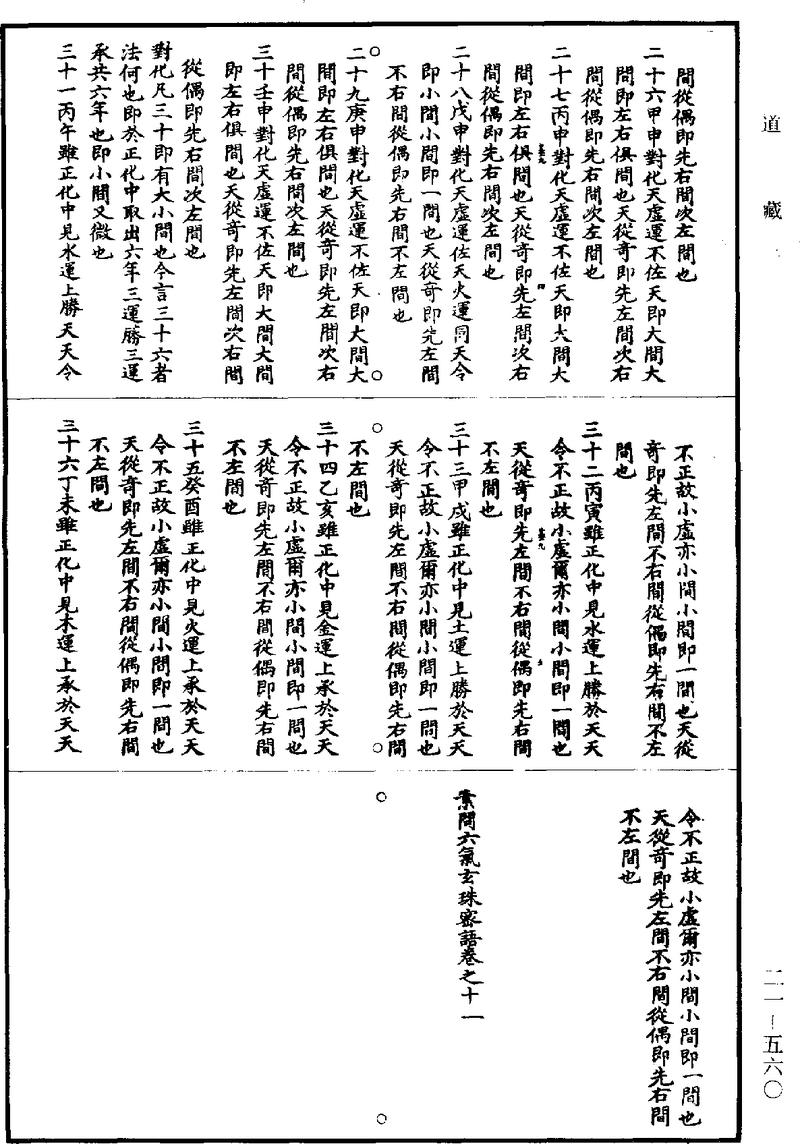 道藏
間從偶即先右間次左間也
二十六甲申對化天虛運不佐天即大間大
間即左右俱間也天從奇即先左間次右
間從偶即先右間次左間也
二十七丙申對化天虛運不佐天即大間大
間即左右俱間也天從奇即先左間次右
間從偶即先右間次左間也
二十八戊申對化天虛運佐天火運同天令
即小間小間即一間也天從奇即先左間
不右間從偶即先右間不左間也
二十九庚申對化天虛運不佐天即大間大
間即左右俱間也天從奇即先左間次右
間從偶即先右間次左間也
三十壬申對化天虛運不佐天即大間大間
即左右俱間也天從奇即先左間次右間
從偶即先右間次左間也
對化凡三十即有大小間也今言三十六者
法何也即於正化中取出六年三運勝三運
承共六年也即小間又微也
三十一丙午雖正化中見水運上勝天天令
不正故小虛亦小間小間即一間也天從
奇即先左間不右間從偶即先右間不左
間也
三十二丙寅雖正化中見水運上勝於天天
令不正故小虛爾亦小間小間即一間也
天從奇即先左間不右間從偶即先右間
不左間也
三十三甲戌雖正化中見土運上勝於天天
令不正故小虛爾亦小間小間即一間也
天從奇即先左間不右間從偶即先右間
不左間也
三十四乙亥雖正化中見金運上承於天天
令不正故小虛爾亦小間小間即一間也
天從奇即先左間不右間從偶即先右間
不左間也
三十五癸酉雖正化中見火運上承於天天
令不正故小虛爾亦小間小間即一間也
天從奇即先左間不右間從偶即先右間
不左間也
三十六丁未雖正化中見木運上承於天天
令不正故小虛爾亦小間小間即一間也
天從奇即先左間不右間從偶即先右間
不左間也
素問六氣玄珠密語卷之十一
二一－五六〇